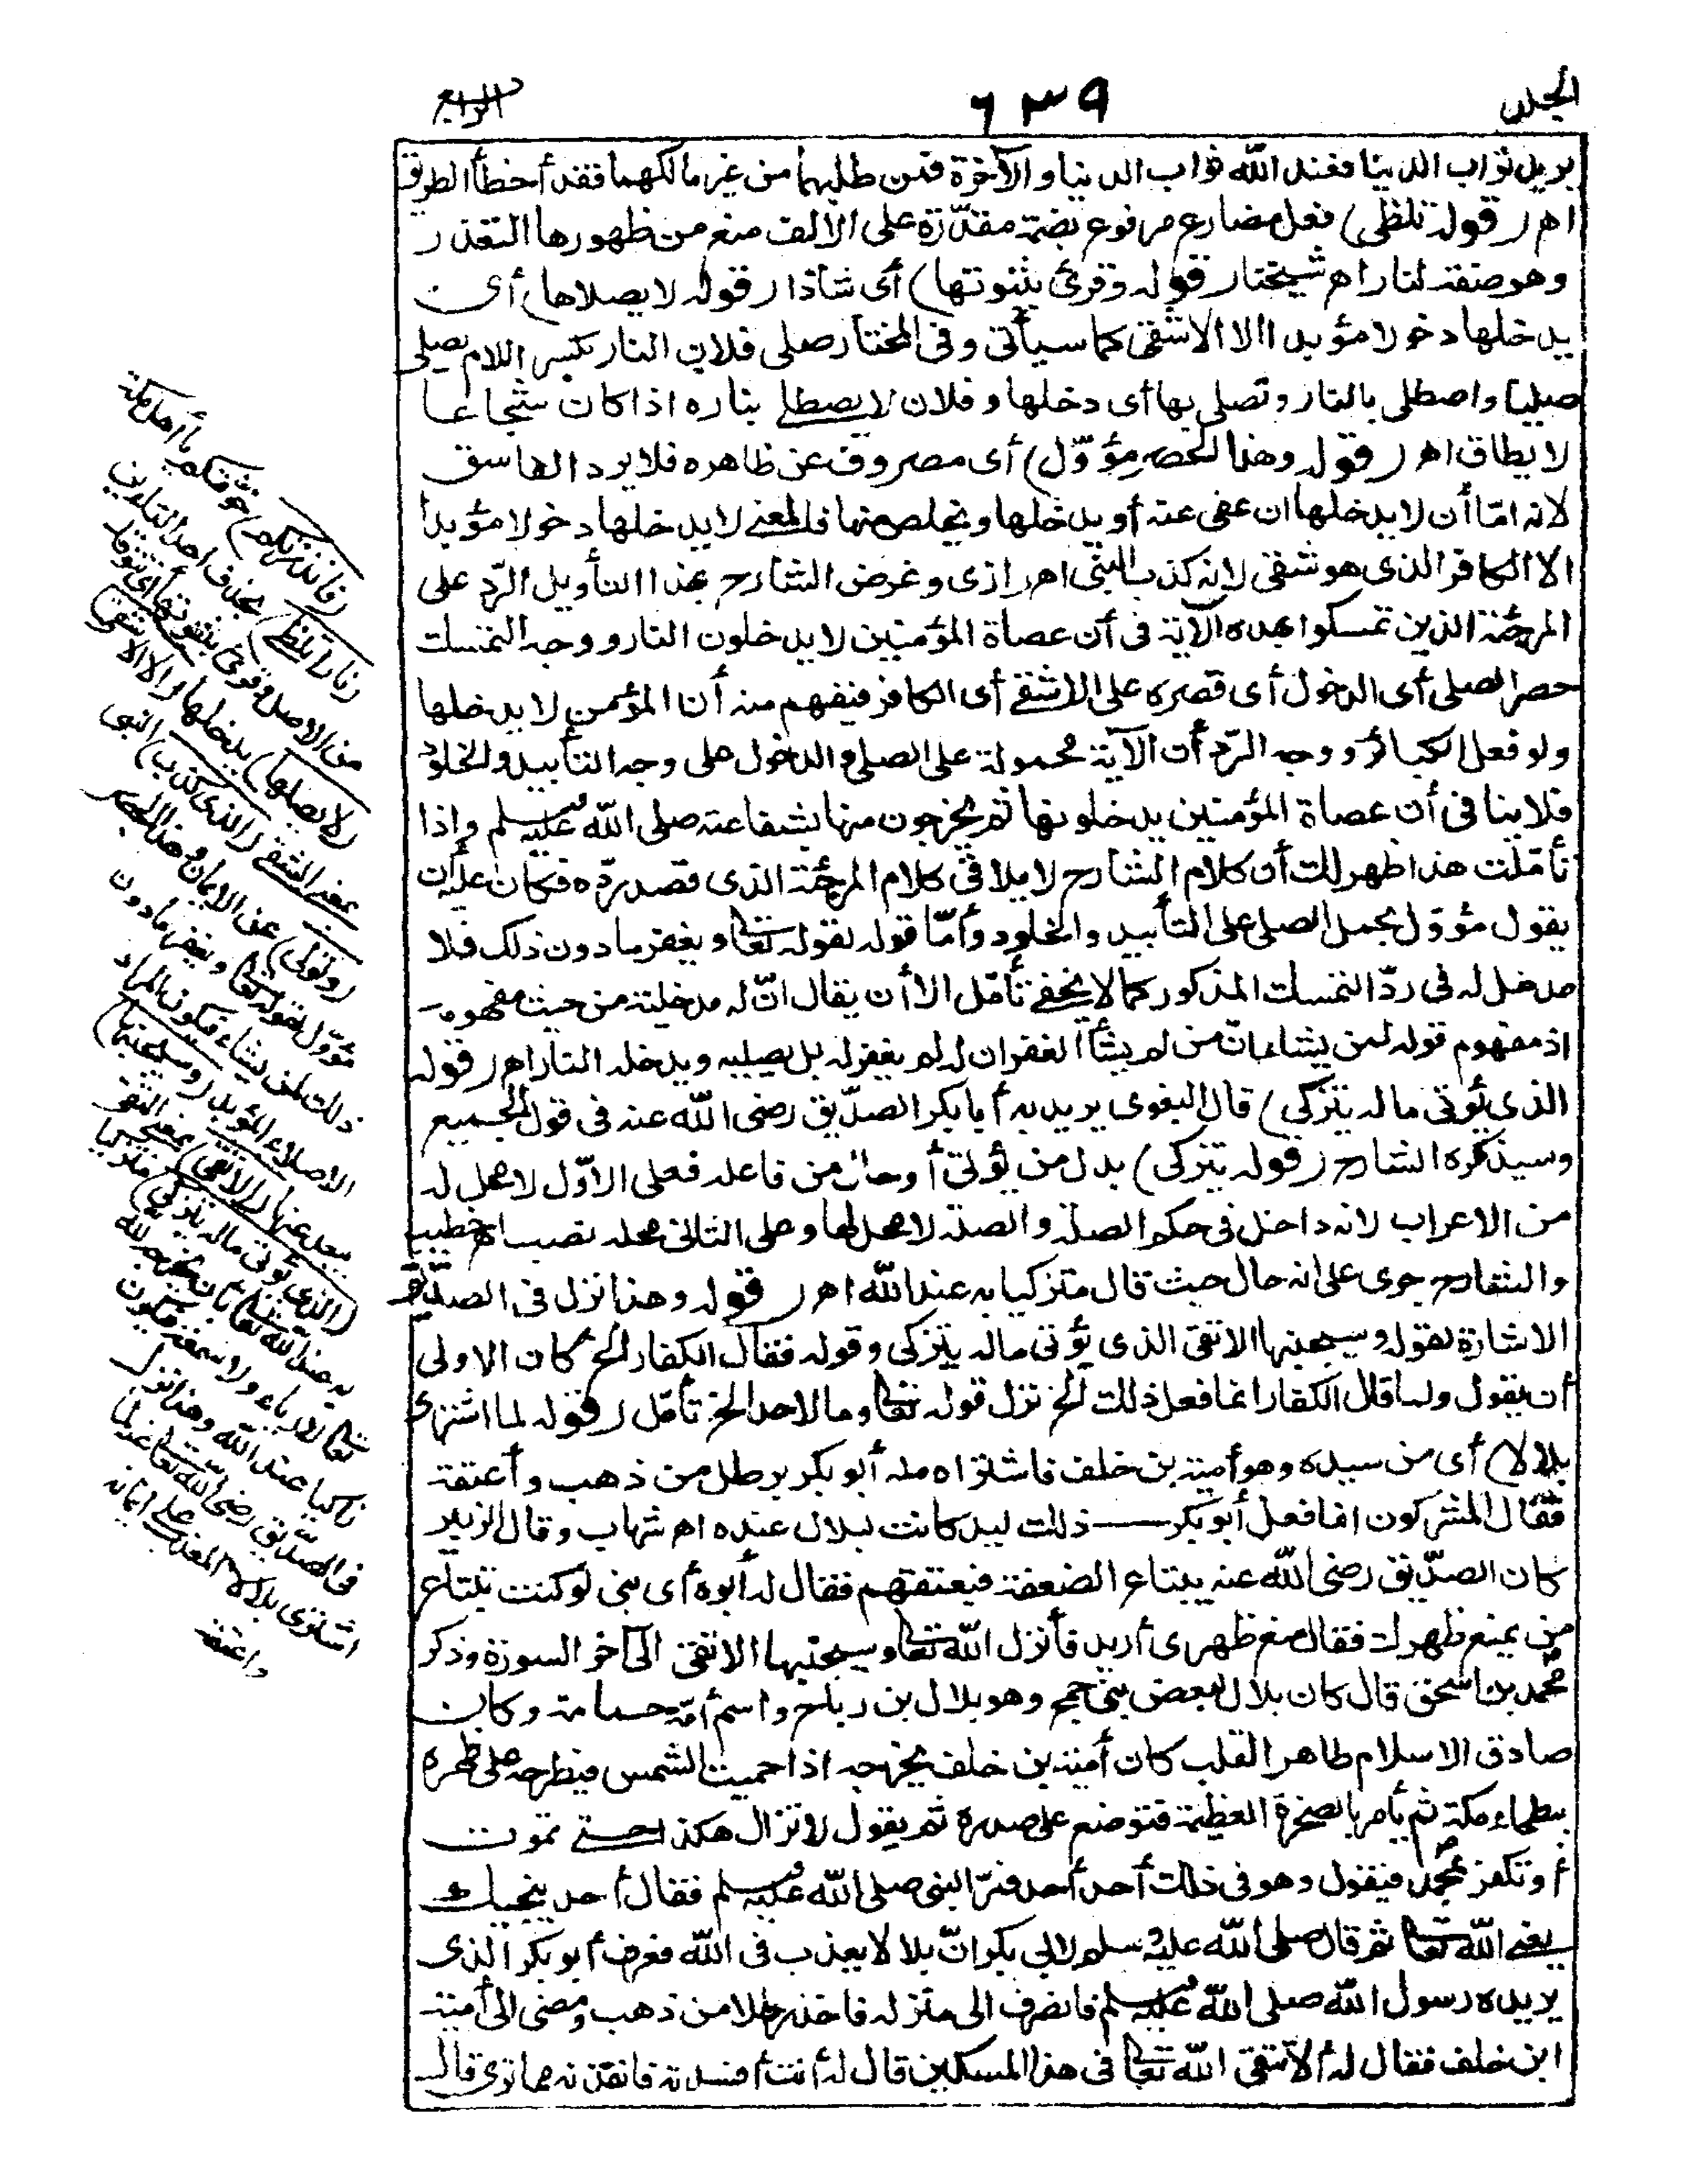 الجلد
٦٣٩
الرابع
يريد ثواب الدنيا فعند الله ثواب الدنيا والآخرة فمن طلبهما من غير مالكهما فقد أخطأ الطريق
اه (قوله تلظى) فعل مضارع مرفوع بضمة مقدرة على الالف منع من ظهورها التعذر
وهو صفة لنارا اه شيخنا (قوله وقرئ بثبوتها) أى شاذا (قوله لا يصلاها) أى
يدخلها دخولا مؤبدا الا الاشقى كما سيأتى وفى المختار صلى فلان النار بكسر اللام يصلى
صليا واصطلى بالنار وتصلى بها أى دخلها وفلان لا يصطلى بناره اذا كان شجاعا
لا يطاق اه (قوله وهذا الحصر مؤوّل) أى مصروف عن ظاهره فلا يرد الفاسق
لانه امّا أن لا يدخلها ان عفى عنه أو يدخلها ويخلص منها فالمعنى لا يدخلها دخولا مؤبدا
الا الكافر الذى هو شقى لانه كذب النبى اه رازى وغرض الشارح بهذا التأويل الرّد على
المرجئة الذين تمسكوا بهذه الآية فى أن عصاة المؤمنين لا يدخلون النار ووجه التمسك
حصر الصلى أى الدخول أى قصره على الاشقى أى الكافر فيفهم منه أن المؤمن لا يدخلها
ولو فعل الكبائر ووجه الرّد أن الآية محمولة على الصلى والدخول على وجه التأبيد والخلود
فلا ينافى أن عصاة المؤمنين يدخلونها ثم يخرجون منها بشفاعته صلى الله عليه وسلم واذا
تأمّلت هذا ظهر لك أن كلام الشارح لا يلاقى كلام المرجئة الذى قصد ردّه فكان عليه أن
يقول مؤوّل بحمل الصلى على التأبيد والخلود وأمّا قوله لقوله تعالى ويغفر ما دون ذلك فلا
مدخل له فى ردّ التمسك المذكور كما لا يخفى تأمّل الا أن يقال انّ له مدخلية من حيث مفهومه
اذ مفهوم قوله لمن يشاء انّ من لم يشأ الغفران له لم يغفر له بل يصليه ويدخله النار اه (قوله
الذى يؤتى ماله يتزكى) قال البغوى يريد به أبا بكر الصدّيق رضى الله عنه فى قول الجميع
وسيذكره الشارح (قوله يتزكى) بدل من يؤتى أو حال من فاعله فعلى الاوّل لا محل له
من الاعراب لانه داخل فى حكم الصلة والصلة لا محل لها وعلى الثانى محله نصب اه خطيب
والشارح جرى على انه حال حيث قال متزكيا به عند الله اه (قوله وهذا نزل فى الصدّيق)
الاشارة لقوله وسيجنبها الاتقى الذى يؤتى ماله يتزكى وقوله فقال الكفار الخ كان الاولى
أن يقول ولما قال الكفار انما فعل ذلك الخ نزل قوله تعالى وما لاحد الخ تأمّل (قوله لما اشترى
بلالا) أى من سيده وهو أمية بن خلف فاشتراه منه أبو بكر برطل من ذهب وأعتقه
فقال المشركون انما فعل أبو بكر ذلك ليد كانت لبلال عنده اه شهاب وقال الزبير
كان الصدّيق رضى الله عنه يبتاع الضعفة فيعتقهم فقال له أبوه أى بنى لو كنت تبتاع
من يمنع ظهرك فقال منع ظهرى أريد فأنزل الله تعالى وسيجنبها الاتقى الى آخر السورة وذكر
محمد بن اسحق قال كان بلال لبعض بنى جمح وهو بلال بن رباح واسم أمّه حمامة وكان
صادق الاسلام طاهر القلب كان أمية بن خلف يخرجه اذا حميت الشمس فيطرحه على ظهره
ببطحاء مكة ثم يأمر بالصخرة العظيمة فتوضع على صدره ثم يقول لا تزال هكذا حتى تموت
أو تكفر بمحمد فيقول وهو فى ذلك أحد أحد فمرّ النبى صلى الله عليه وسلم فقال أحد ينجيك
يعنى الله تعالى ثم قال صلى الله عليه وسلم لابى بكر انّ بلالا يعذب فى الله فعرف أبو بكر الذى
يريده رسول الله صلى الله عليه وسلم فانصرف الى منزله فأخذ رطلا من ذهب ومضى الى أمية
ابن خلف فقال له ألا تتقى الله تعالى فى هذا المسكين قال له أنت أفسدته فانقذه مما ترى قال
(فانذرتكم) خوفتكم يا أهل مكة
(نارا تلظى) بحذف احدى التاءين
من الاصل وقرئ بثبوتها أى تتوقد
(لا يصلاها) يدخلها (الا الاشقى)
بمعنى الشقى (الذى كذب) النبى
(وتولى) عن الايمان وهذا الحصر
مؤوّل لقوله تعالى ويغفر ما دون
ذلك لمن يشاء فيكون المراد
الاصلاء المؤبد (وسيجنبها)
يبعد عنها (الاتقى) بمعنى التقى
(الذى يؤتى ماله يتزكى) متزكيا
به عند الله تعالى بان يخرجه لله
تعالى لا رياء ولا سمعة فيكون
زاكيا عند الله وهذا نزل
فى الصدّيق رضى الله تعالى عنه لما
اشترى بلالا المعذب على ايمانه
واعتقه